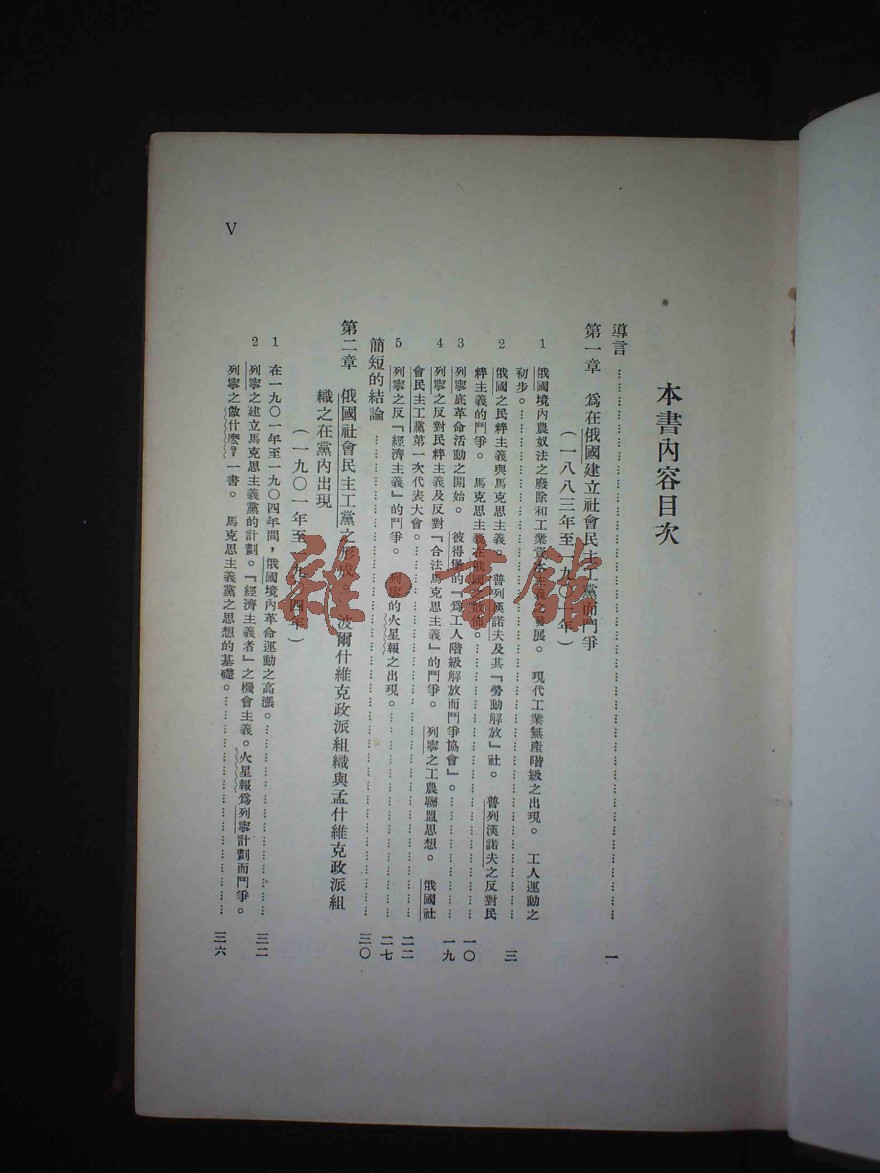 本書內容目次
導言……………………………………一
第一章　爲在俄國建立社會民主工黨而鬥爭
（一八八三年至一九〇一年）
1　俄國境內農奴法之廢除和工業資本主義之發展。　現代工業無產階級之出現。　工人運動之
初步。……………………………………三
2　俄國之民粹主義與馬克思主義。　普列漢諾夫及其『勞動解放』社。　普列漢諾夫之反對民
粹主義的鬥爭。　馬克思主義在俄國之散佈。……………………………………一〇
3　列寧底革命活動之開始。　彼得堡的『爲工人階級解放而鬥爭協會』。……………………………………一九
4　列寧之反對民粹主義及反對『合法馬克思主義』的鬥爭。　列寧之工農聯盟思想。　俄國社
會民主工黨第一次代表大會。……………………………………二二
5　列寧之反『經濟主義』的鬥爭。　列寧的火星報之出現。……………………………………二七
簡短的結論……………………………………三〇
第二章　俄國社會民主工黨之形成。　波爾什維克政派組織與孟什維克政派組
織之在黨內出現
（一九〇一年至一九〇四年）
1　在一九〇一年至一九〇四年間，俄國境內革命運動之高漲。……………………………………三二
2　列寧之建立馬克思主義黨的計劃。『經濟主義者』之機會主義。火星報爲列寧計劃而鬥爭。
列寧之做什麼？一書。　馬克思主義黨之思想的基礎。……………………………………三六
V
雜·書館